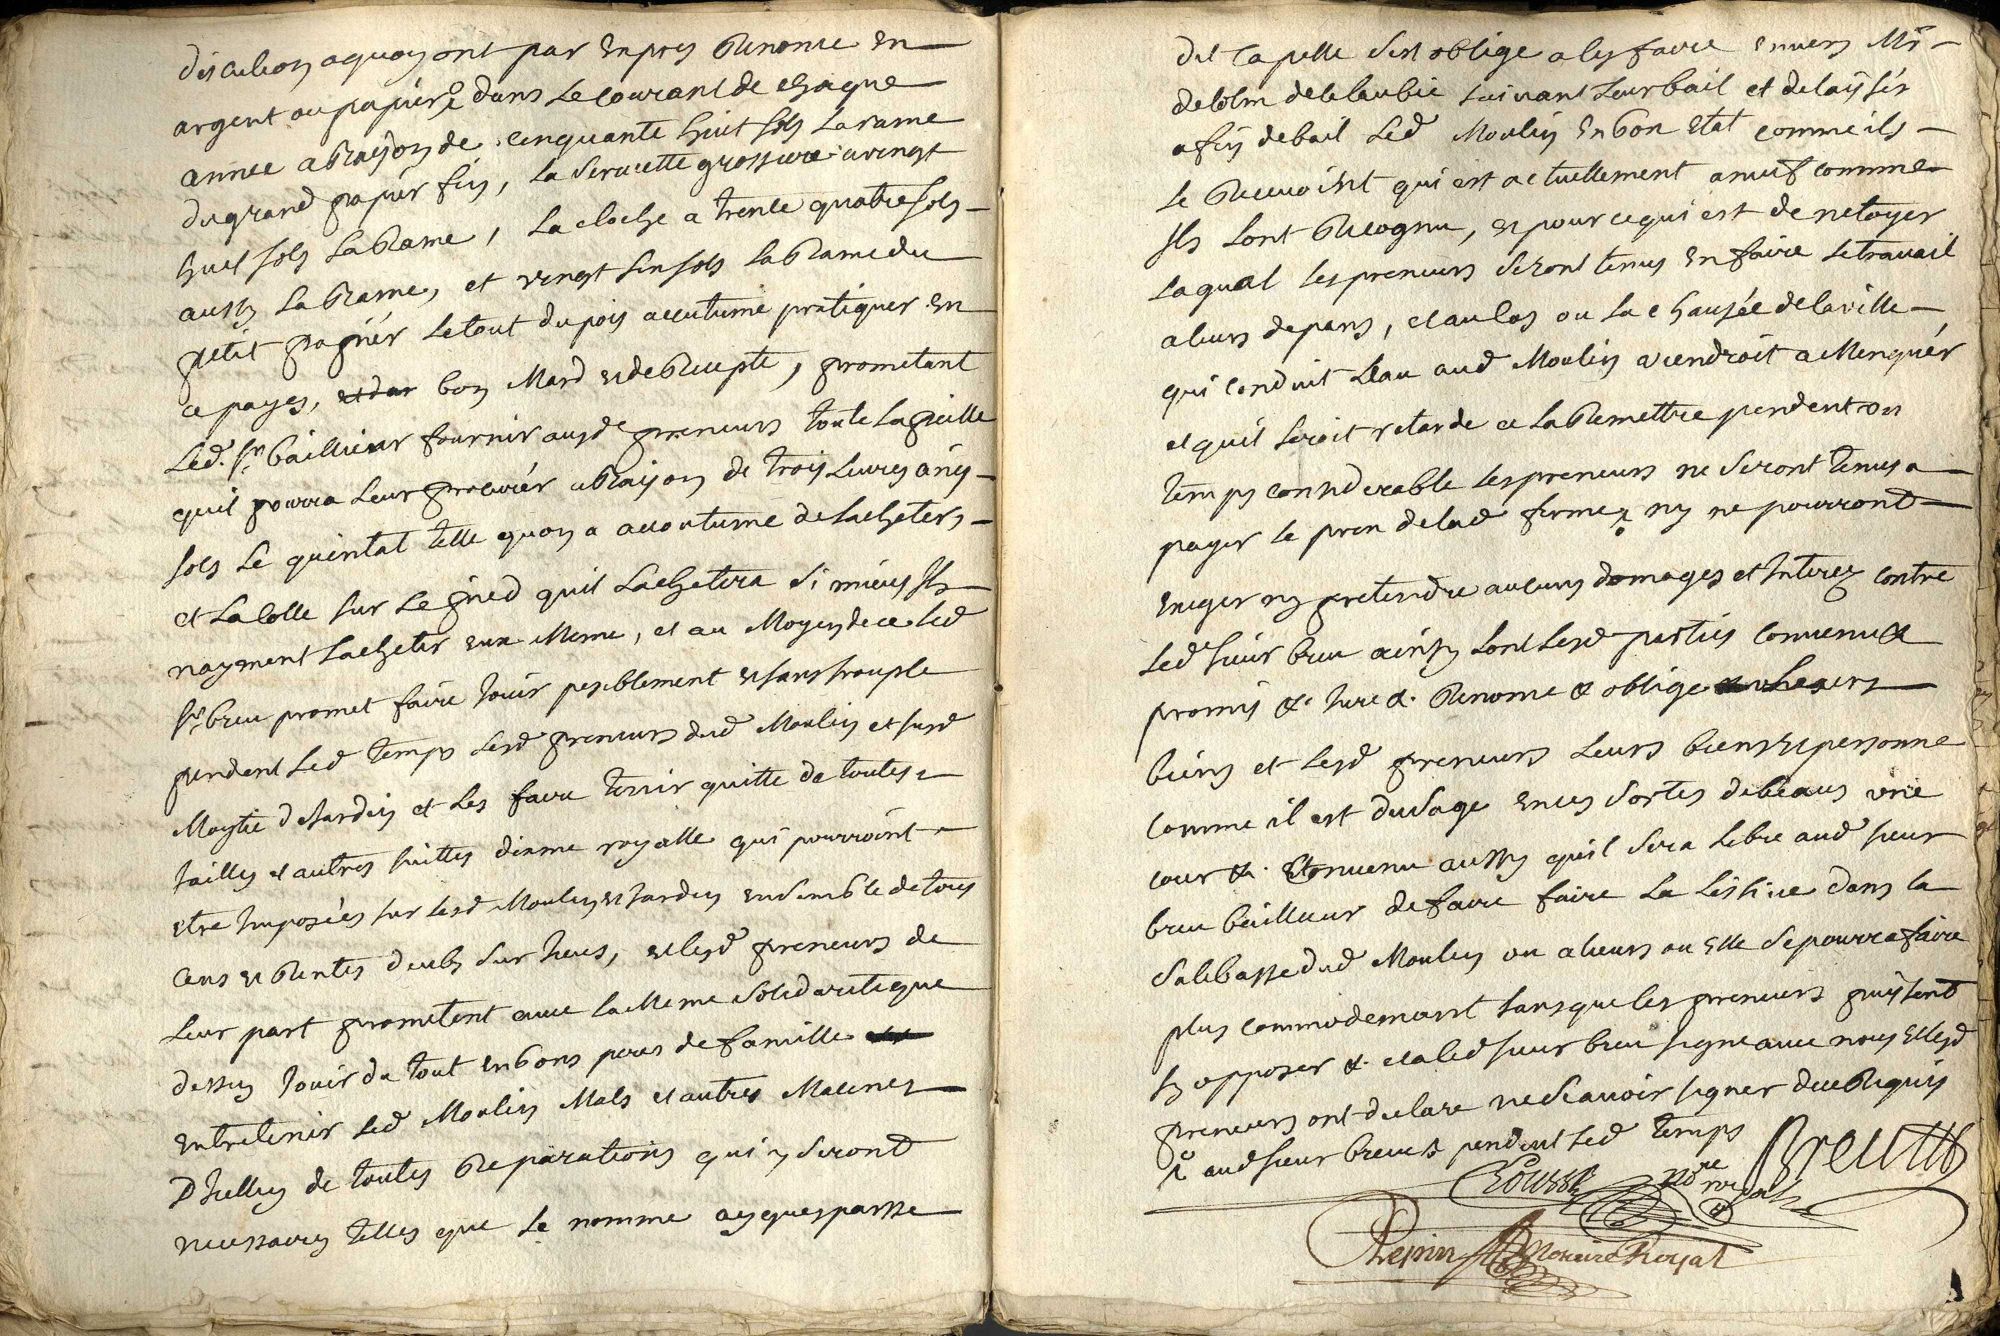 discution aquoy ont par expres Renonce en
argent ou papier dans Le courant de chaque
annee a Raison de cinquante huit sols La rame
du grand papier fin, La Seruiette grossiere a vingt
huit sols La Rame, La cloche a trente quatre sols
aussy La Rame, et vingt sols La Rame du
petit papier Le tout du pois acutumé pratiquer en
ce payes, bon Mard et de Recepte, prometant
Led. Sr bailleur fournir ausd preneurs toute La pielle
quil pourra Leur procurér a Raison de trois Liures
sols Le quintal telle quon a acoutume de Lacheter
et La colle sur Le pied quil Lachetera Si mieux Ils
nayment Lacheter eux Meme, et au Moyen de ce Led
Sr breu promet faire Jouir pesiblement et sans trouple
pendent Led temps Lesd preneurs dud Moulin et susd
Moytie de Jardin et Les faire tenir quitte de toutes
tailles et autres suittes dixme royalle qui pourroint
etre Imposées sur Lesd Moulin et Jardin ensemble de tous
cens et Rentes deubs sur Iceux, et Lesd preneurs de
Leur part prometent auec La Meme Solidarite que
dessus Jouir du tout en bons peres de famille
entretenir Led Moulin Mals et autres Macines
D'Icelluy de toutes Reparations qui y Seront
necessaires telles que Le nomme
del Capelle s'est oblige a les faire enuers Mr
suiuant Leur bail et delaisser
a fin de bail Led Moulin en bon etat comme ils
Le Recuoiht qui est actuellement a neuf comme
Ils sont Recognu, et pour ce qui est de netoyer
Laqual les preneurs Seront tenus en faire Le trauail
a leurs depans, et au cas ou La chausée de la ville
qui conduit Leau aud Moulin viendroit a Menquér
et quil Seroit retarde a La Remettre pendent un
temps considerable les preneurs ne Seront tenus a
payer le prix de lad ferme ny ne pourront
exiger ny pretendre aucuns domages et Interez contre
Led sieur breu ainsy sont Lesd parties conuenu &
promis &. Jure &. Renonce & oblige
biens et Lesd preneurs Leurs biens et personne
comme il est dusage en ces Sortes debeaus
cour &. Conuenu aussy quil Sera Libre aud sieur
breu bailleur de faire faire La Lessiue dans la
Salle basse dud Moulin ou alieurs ou Elle Se pourra faire
plus commodemant sans que les preneurs puissent
sy opposer &. et a led sieur breu signe auec nous et lesd
preneurs ont declare ne Scauoir signer de ce Requis
aud sieur breu pendent Led temps
Breu
nore royal
Pepin Notaire Royal